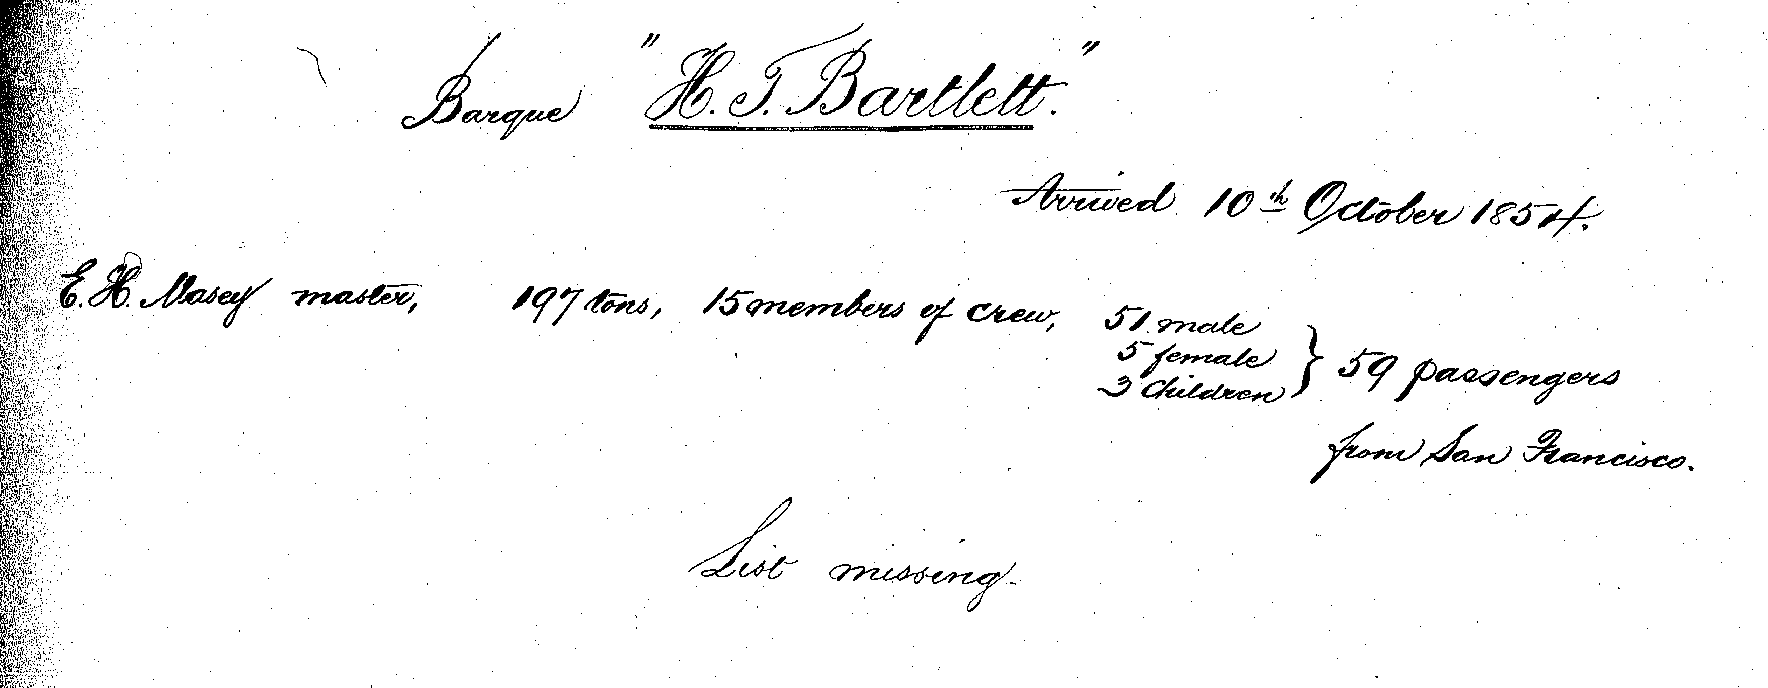 Barque "H. T. Bartlett."
Arrived 10th October 1854.
E. H. Masey master, 197 tons, 15 members of crew, 51 male
5 female
3 Children } 59 passengers
from San Francisco.
List missing.